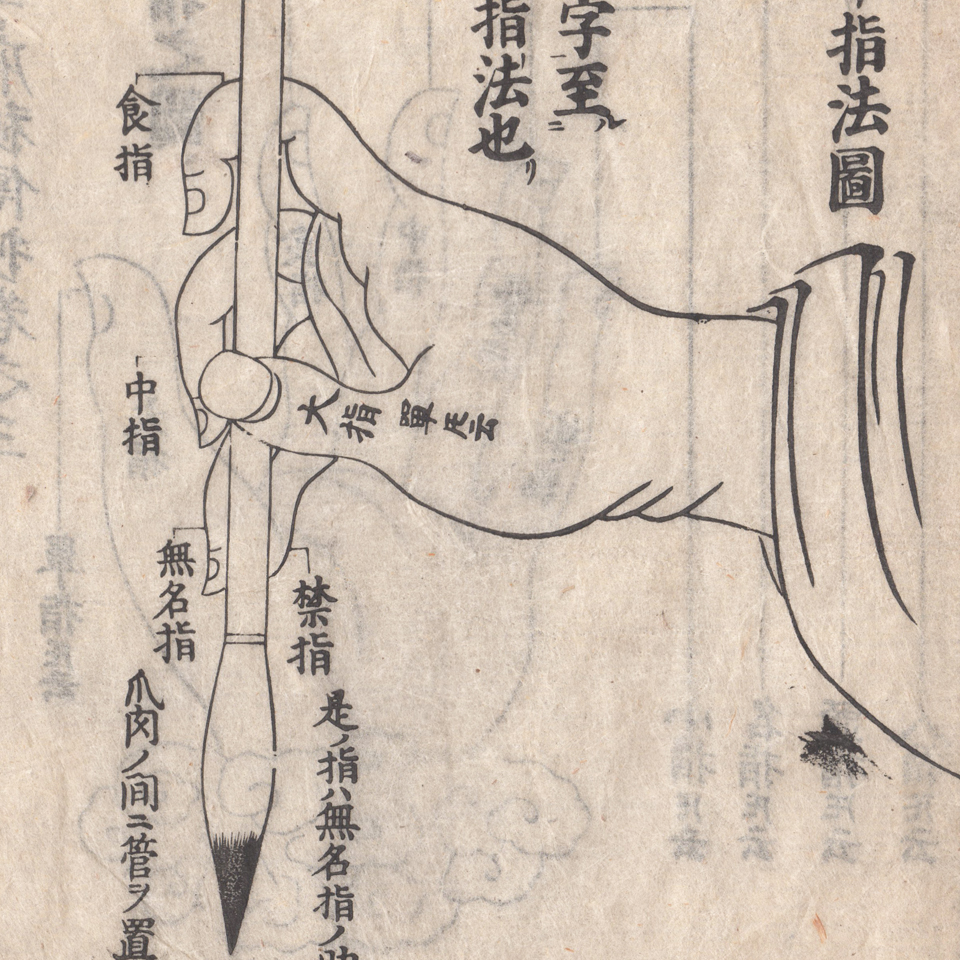 指法圖
字至
指法也
食指
中指
大指 單尾云
無名指
爪肉ノ間ニ管ヲ置
禁指
是ノ指ハ無名指ノ助